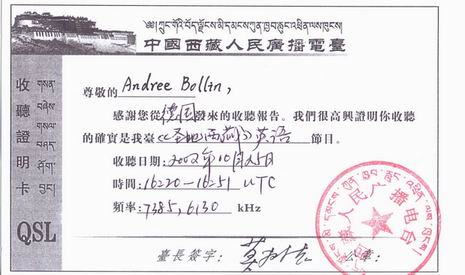 ཀྲུང་གོའི་བོད་ལྗོངས་མི་དམངས་ཀུན་ཁྱབ་རླུང་འཕྲིན་ལས་ཁུངས།
中國西藏人民廣播電臺
收聽證明卡
QSL
尊敬的 Andree Bollin,
感謝您從德国發來的收聽報告。我們很高興證明你收聽
的確實是我臺《圣地西藏》英语 節目。
收聽日期:2002年10月25日
時間:1620-1651 UTC
頻率:7385,6130 kHz
臺長簽字:
公章:
西藏人民广播电台